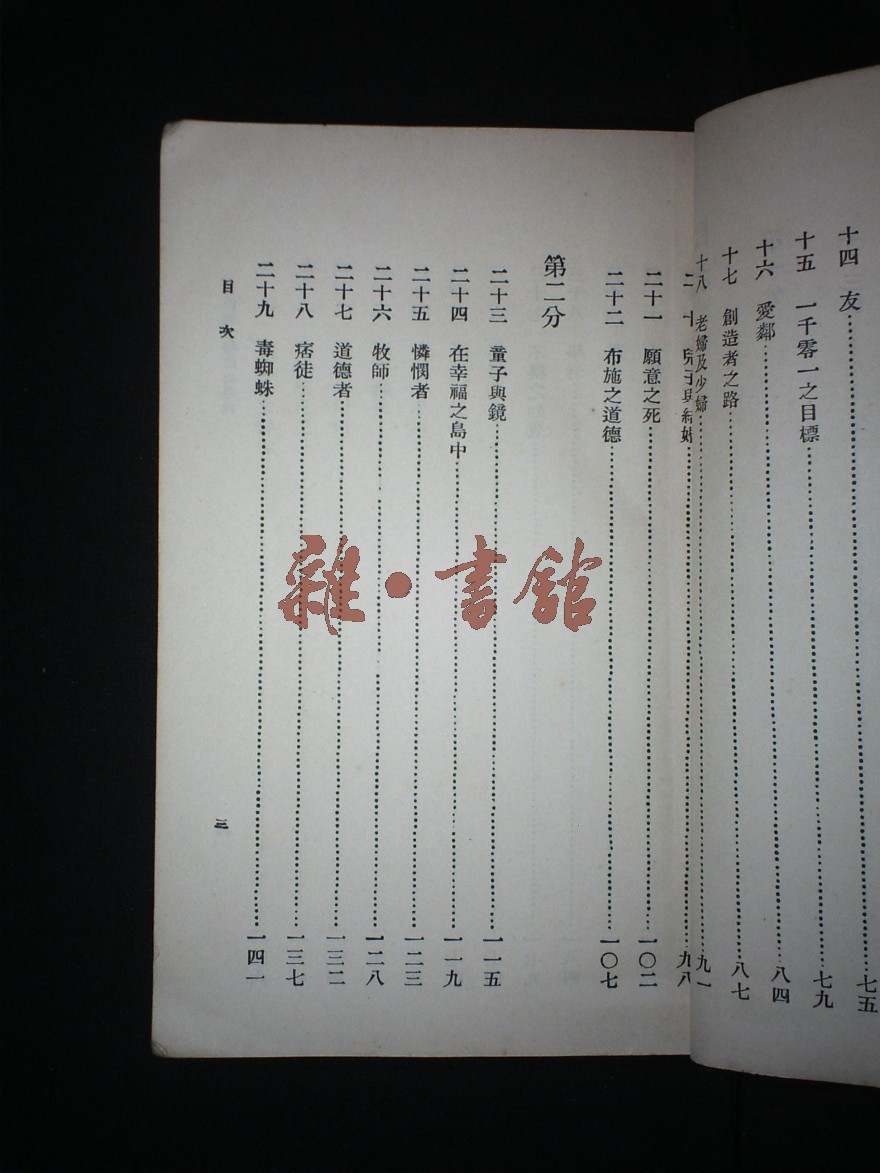 十四 友……七五
十五 一千零一之目標……七九
十六 愛鄰……八四
十七 創造者之路……八七
十八 老婦及少婦……九一
二十 與結婚……九八
二十一 願意之死……一〇二
二十二 布施之道德……一〇七
第二分
二十三 童子與鏡……一一五
二十四 在幸福之島中……一一九
二十五 憐憫者……一二三
二十六 牧師……一二八
二十七 道德者……一三二
二十八 痞徒……一三七
二十九 毒蜘蛛……一四一
目次
三
雜·書館